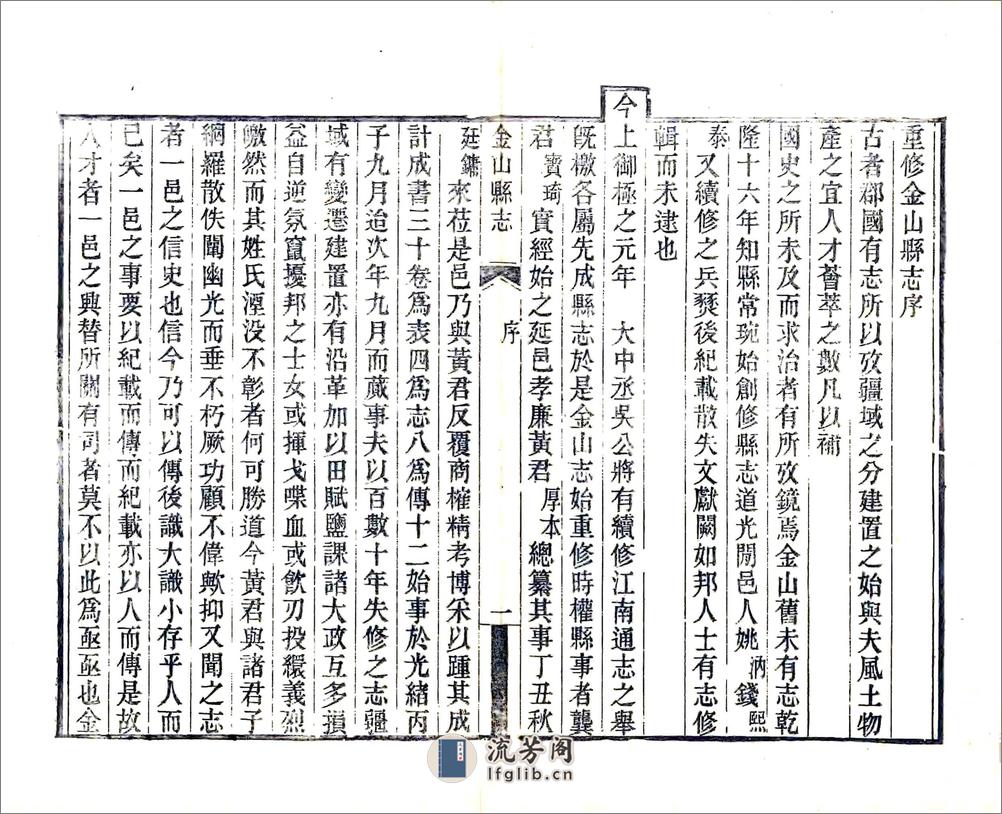 重修金山縣志序
古者郡國有志所以攷疆域之分建置之始與夫風土物
產之宜人才薈萃之數凡以補
國史之所未及而求治者有所攷鏡焉金山舊未有志乾
隆十六年知縣常琬始創修縣志道光閒邑人姚汭錢熙
泰又續修之兵燹後紀載散失文獻闕如邦人士有志修
輯而未逮也
今上御極之元年 大中丞吳公將有續修江南通志之舉
旣檄各屬先成縣志於是金山志始重修時權縣事者龔
君寶琦實經始之延邑孝廉黃君厚本總纂其事丁丑秋
金山縣志 序 一
廷鏞來莅是邑乃與黃君反覆商榷精考博采以踵其成
計成書三十卷爲表四爲志八爲傳十二始事於光緒丙
子九月迨次年九月而蕆事夫以百數十年失修之志疆
域有變遷建置亦有沿革加以田賦鹽課諸大政互多損
益自逆氛竄擾邦之士女或揮戈喋血或飮刃投繯義烈
皦然而其姓氏湮没不彰者何可勝道今黃君與諸君子
網羅散佚闡幽光而垂不朽厥功顧不偉歟抑又聞之志
者一邑之信史也信今乃可以傳後識大識小存乎人而
已矣一邑之事要以紀載而傳而紀載亦以人而傳是故
人才者一邑之興替所關有司者莫不以此爲亟亟也金
流芳阁
lfglib.cn